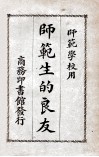 師範學校用
師範生的良友
商務印書館發行